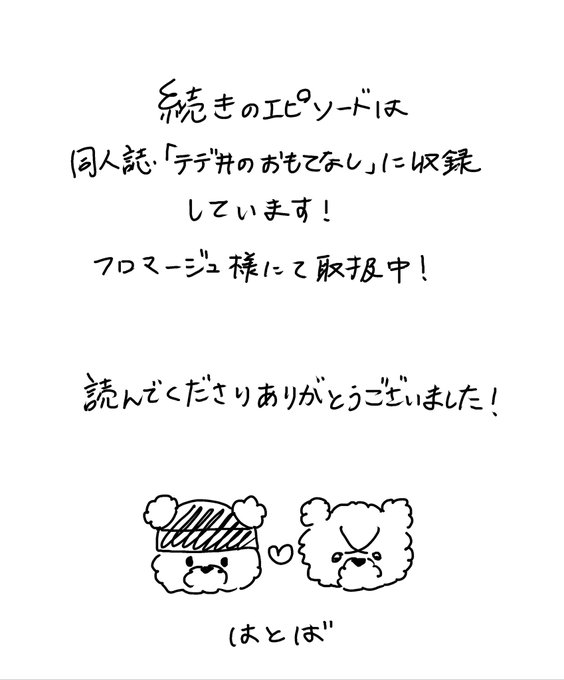 続きのエピソードは
同人誌「テデ井のおもてなし」に収録
しています!
フロマージュ様にて取扱中!
読んでくださりありがとうございました!
はとば